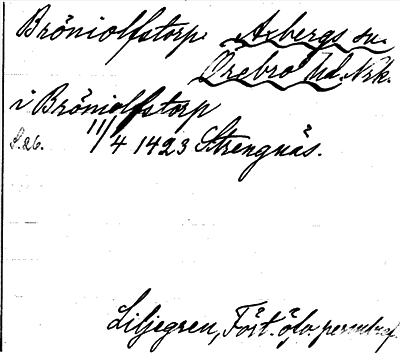 Bröniolfstorp Axbergs sn.
Örebro hd. Nrk.
i Bröniolfstorp
S. 26. 11/4 1423 Strengnäs.
Liljegren, Fört. öfv. permbref.